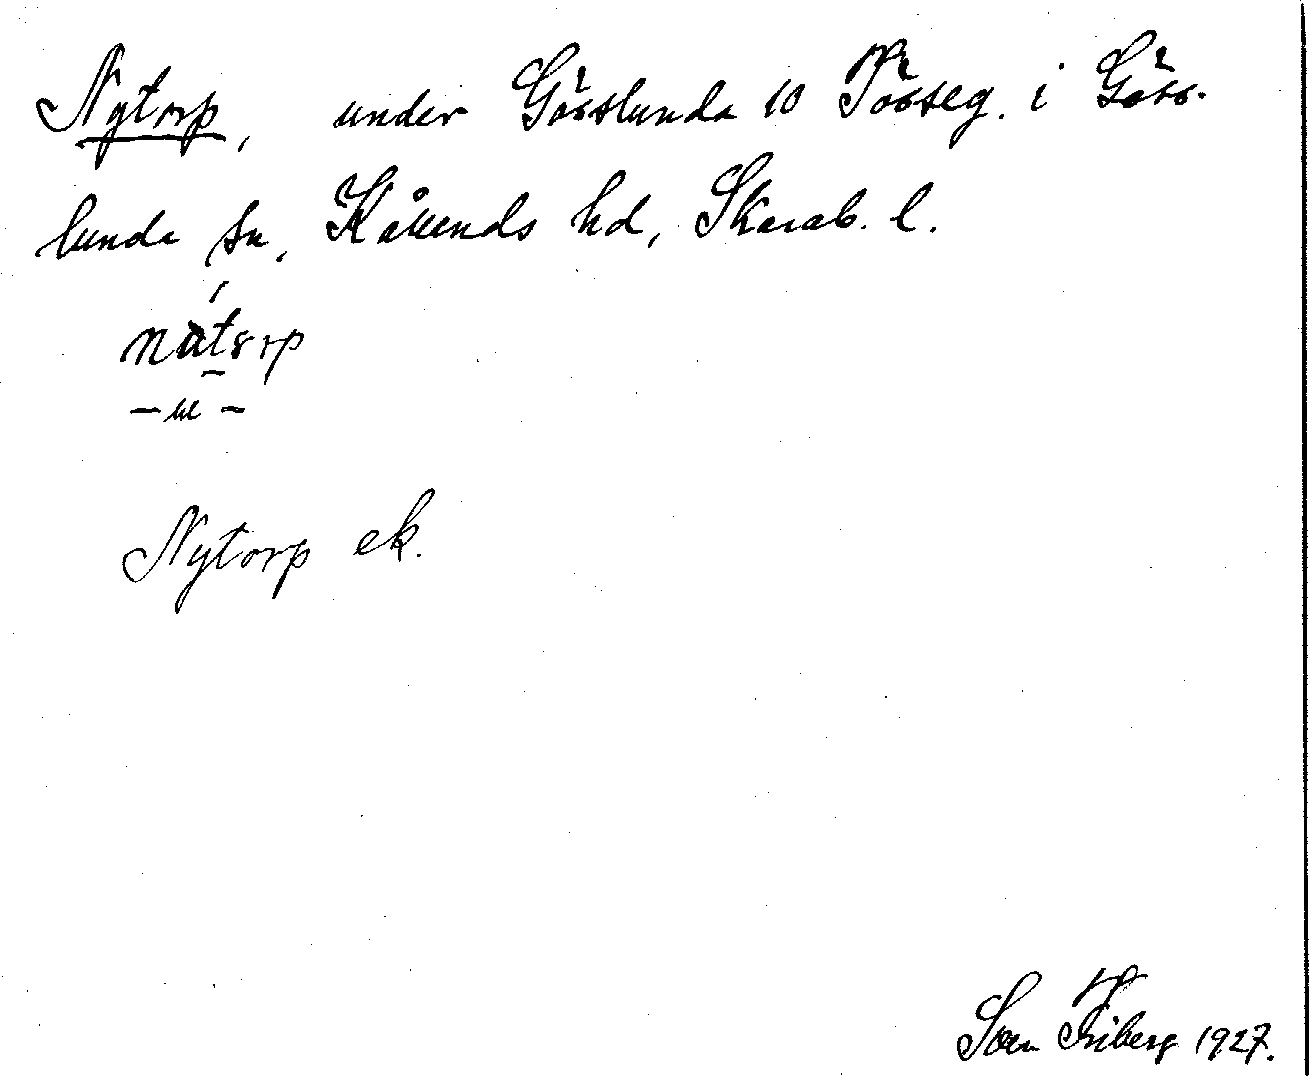 Nytorp, under Gösslunda 10 Pösseg. i Göss-
lunda sn, Kållands hd, Skarab. l.
nátorp
–"–
Nytorp ek.
Sven Friberg 1927.